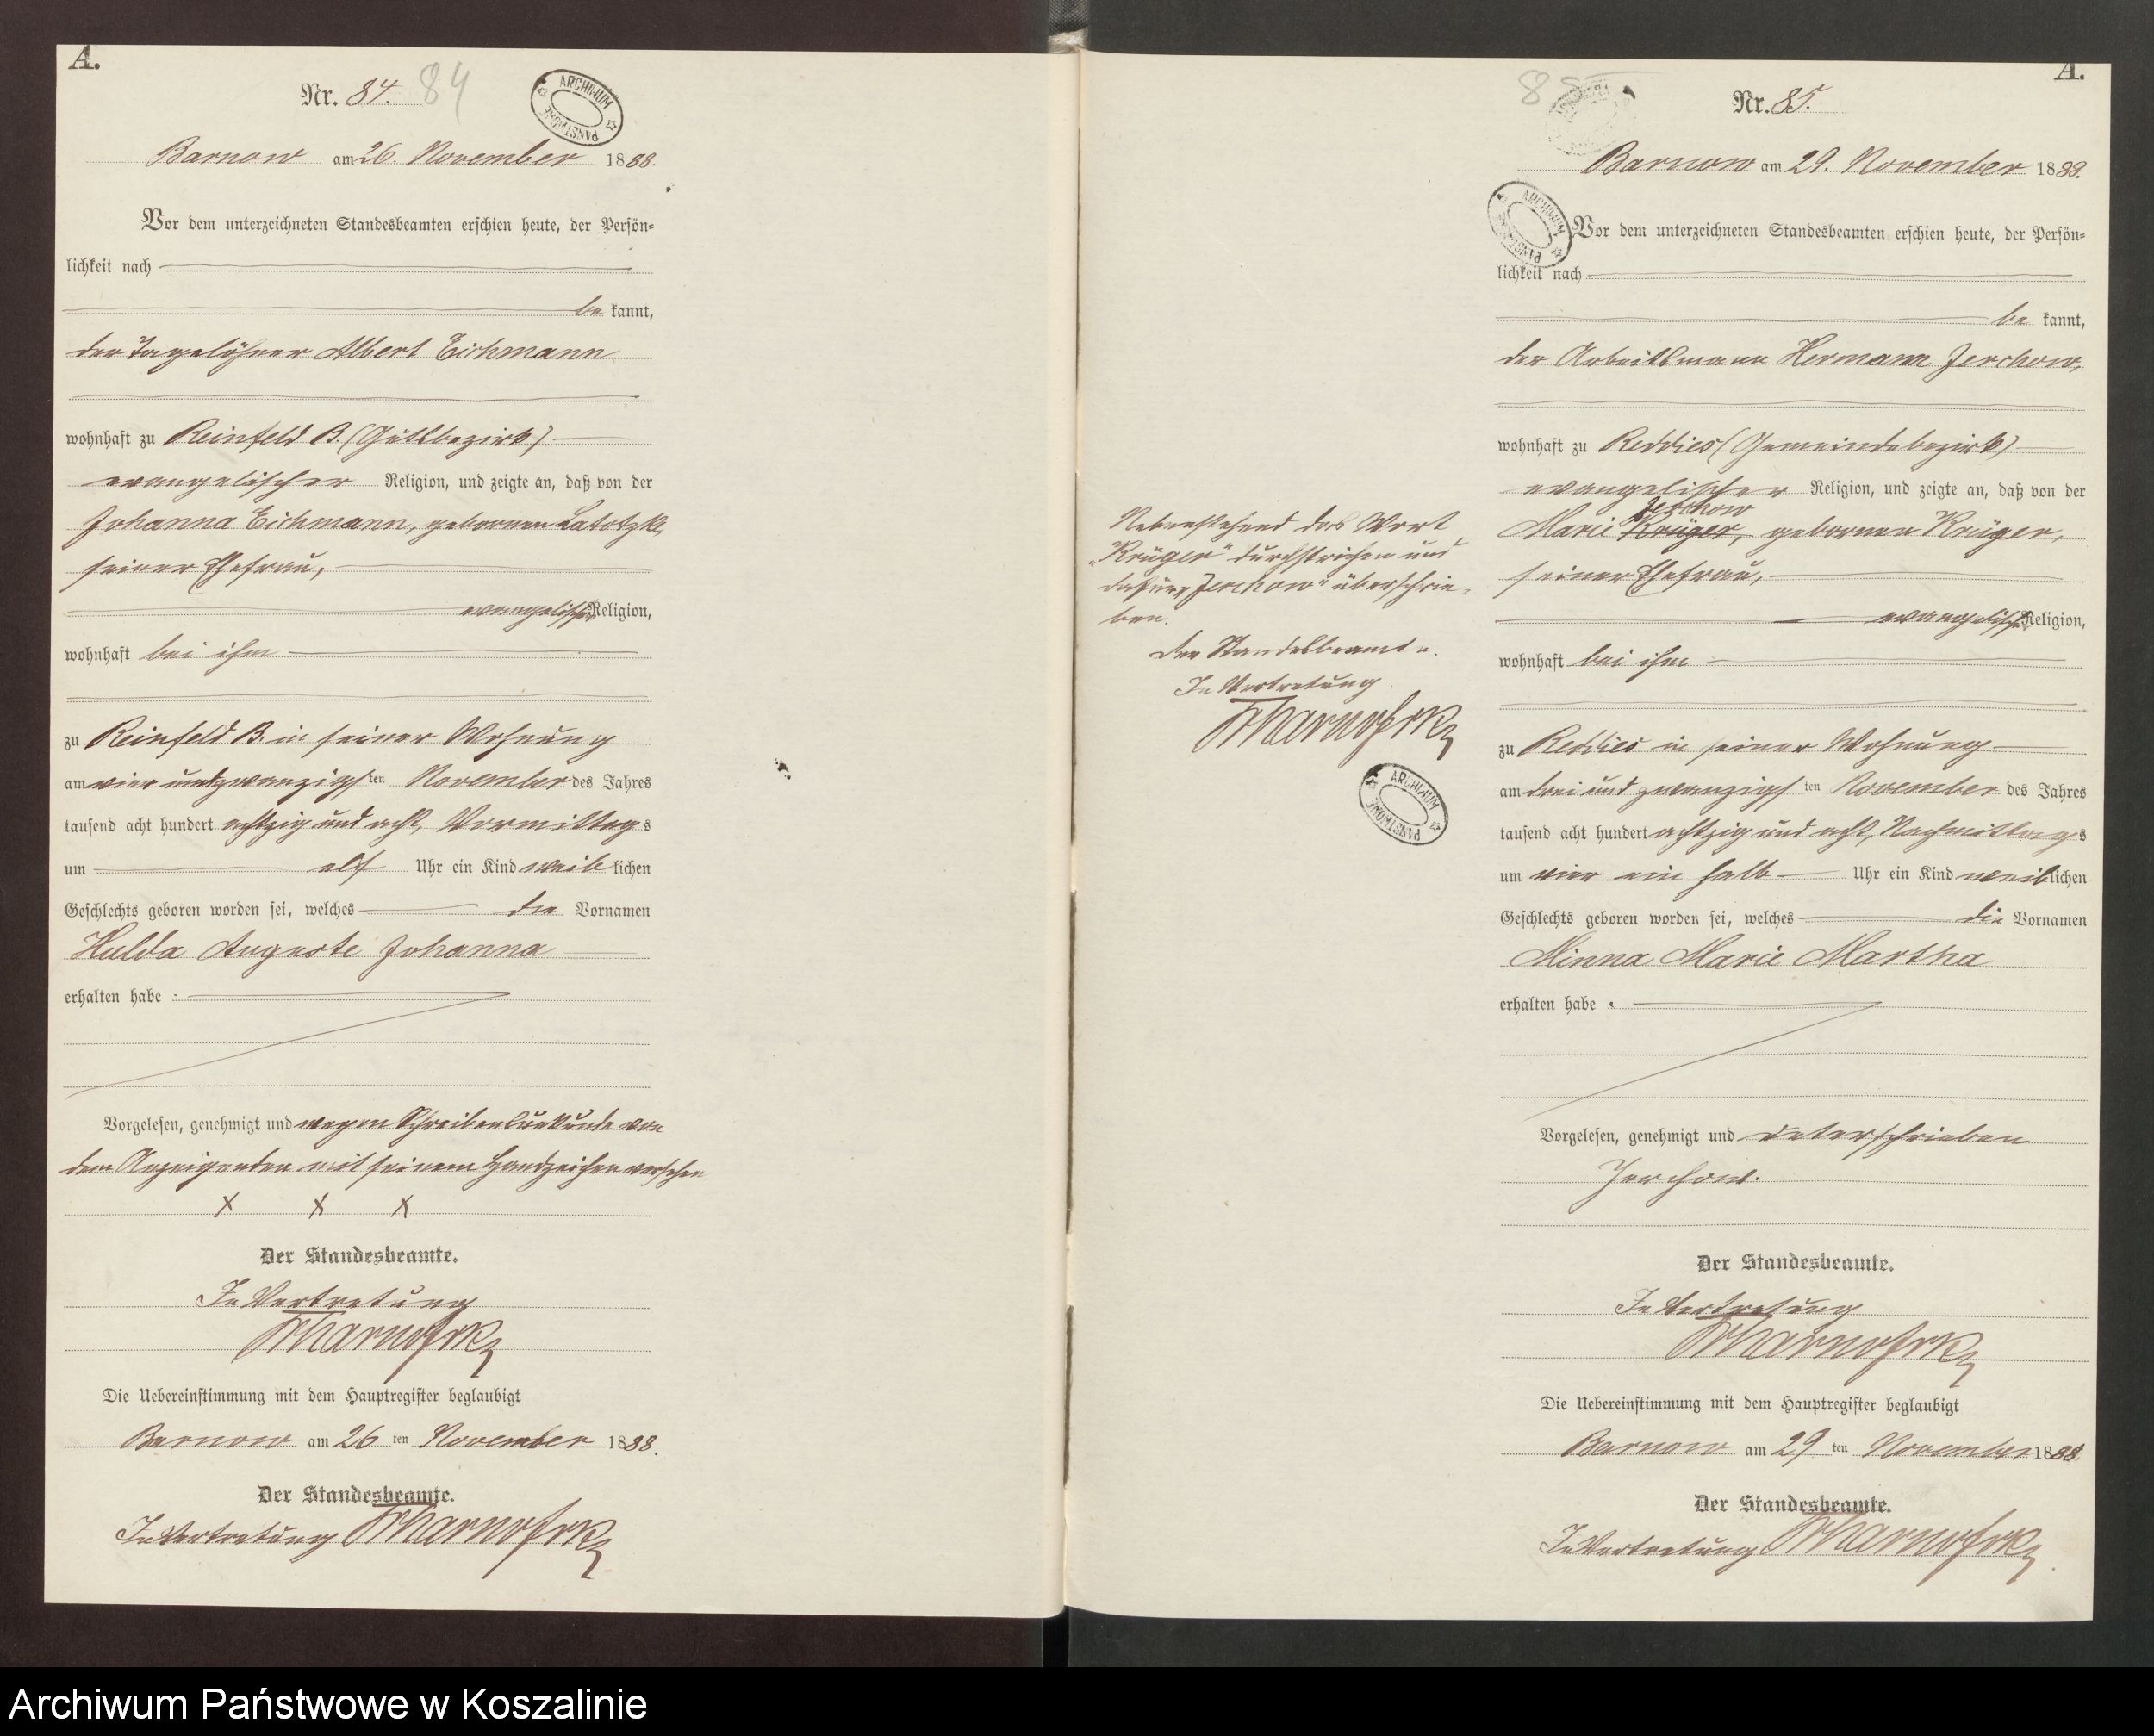 A.
Nr. 84. 84
ARCHIWUM PAŃSTWOWE
Barnow am 26. November 1888.
Vor dem unterzeichneten Standesbeamten erschien heute, der Persön=
lichkeit nach
be kannt,
der Tagelöhner Albert Eichmann
wohnhaft zu Reinfeld B. (Gutsbezirk)
evangelischer Religion, und zeigte an, daß von der
Johanna Eichmann, geborenen Latotzke,
seiner Ehefrau,
evangelischer Religion,
wohnhaft bei ihm
zu Reinfeld B. in seiner Wohnung
am vier und zwanzigsten November des Jahres
tausend acht hundert achtzig und acht, Vormittags
um elf Uhr ein Kind weiblichen
Geschlechts geboren worden sei, welches die Vornamen
Hulda Auguste Johanna
erhalten habe.
Vorgelesen, genehmigt und wegen Schreibensunkunde von
dem Anzeigenden mit seinem Handzeichen versehen
X X X
Der Standesbeamte.
In Vertretung
Die Uebereinstimmung mit dem Hauptregister beglaubigt
Barnow am 26 ten November 1888.
Der Standesbeamte.
In Vertretung
A.
85
Nr. 85.
Barnow am 29. November 1888.
ARCHIWUM PAŃSTWOWE
Vor dem unterzeichneten Standesbeamten erschien heute, der Persön=
lichkeit nach
be kannt,
der Arbeitsmann Hermann Jerchow,
wohnhaft zu Reddies (Gemeindebezirk)
evangelischer Religion, und zeigte an, daß von der
Jerchow
Marie Krüger, geborenen Krüger,
seiner Ehefrau,
evangelischer Religion,
wohnhaft bei ihm
zu Reddies in seiner Wohnung
am drei und zwanzigsten November des Jahres
tausend acht hundert achtzig und acht, Nachmittags
um vier ein halb Uhr ein Kind weiblichen
Geschlechts geboren worden sei, welches die Vornamen
Minna Marie Martha
erhalten habe.
Vorgelesen, genehmigt und unterschrieben
Jerchow.
Der Standesbeamte.
In Vertretung
Die Uebereinstimmung mit dem Hauptregister beglaubigt
Barnow am 29 ten November 1888.
Der Standesbeamte.
In Vertretung
Nebenstehend das Wort
„Krüger" durchstrichen und
dafür „Jerchow" überschrie-
ben.
Der Standesbeamte.
In Vertretung
ARCHIWUM PAŃSTWOWE
Archiwum Państwowe w Koszalinie